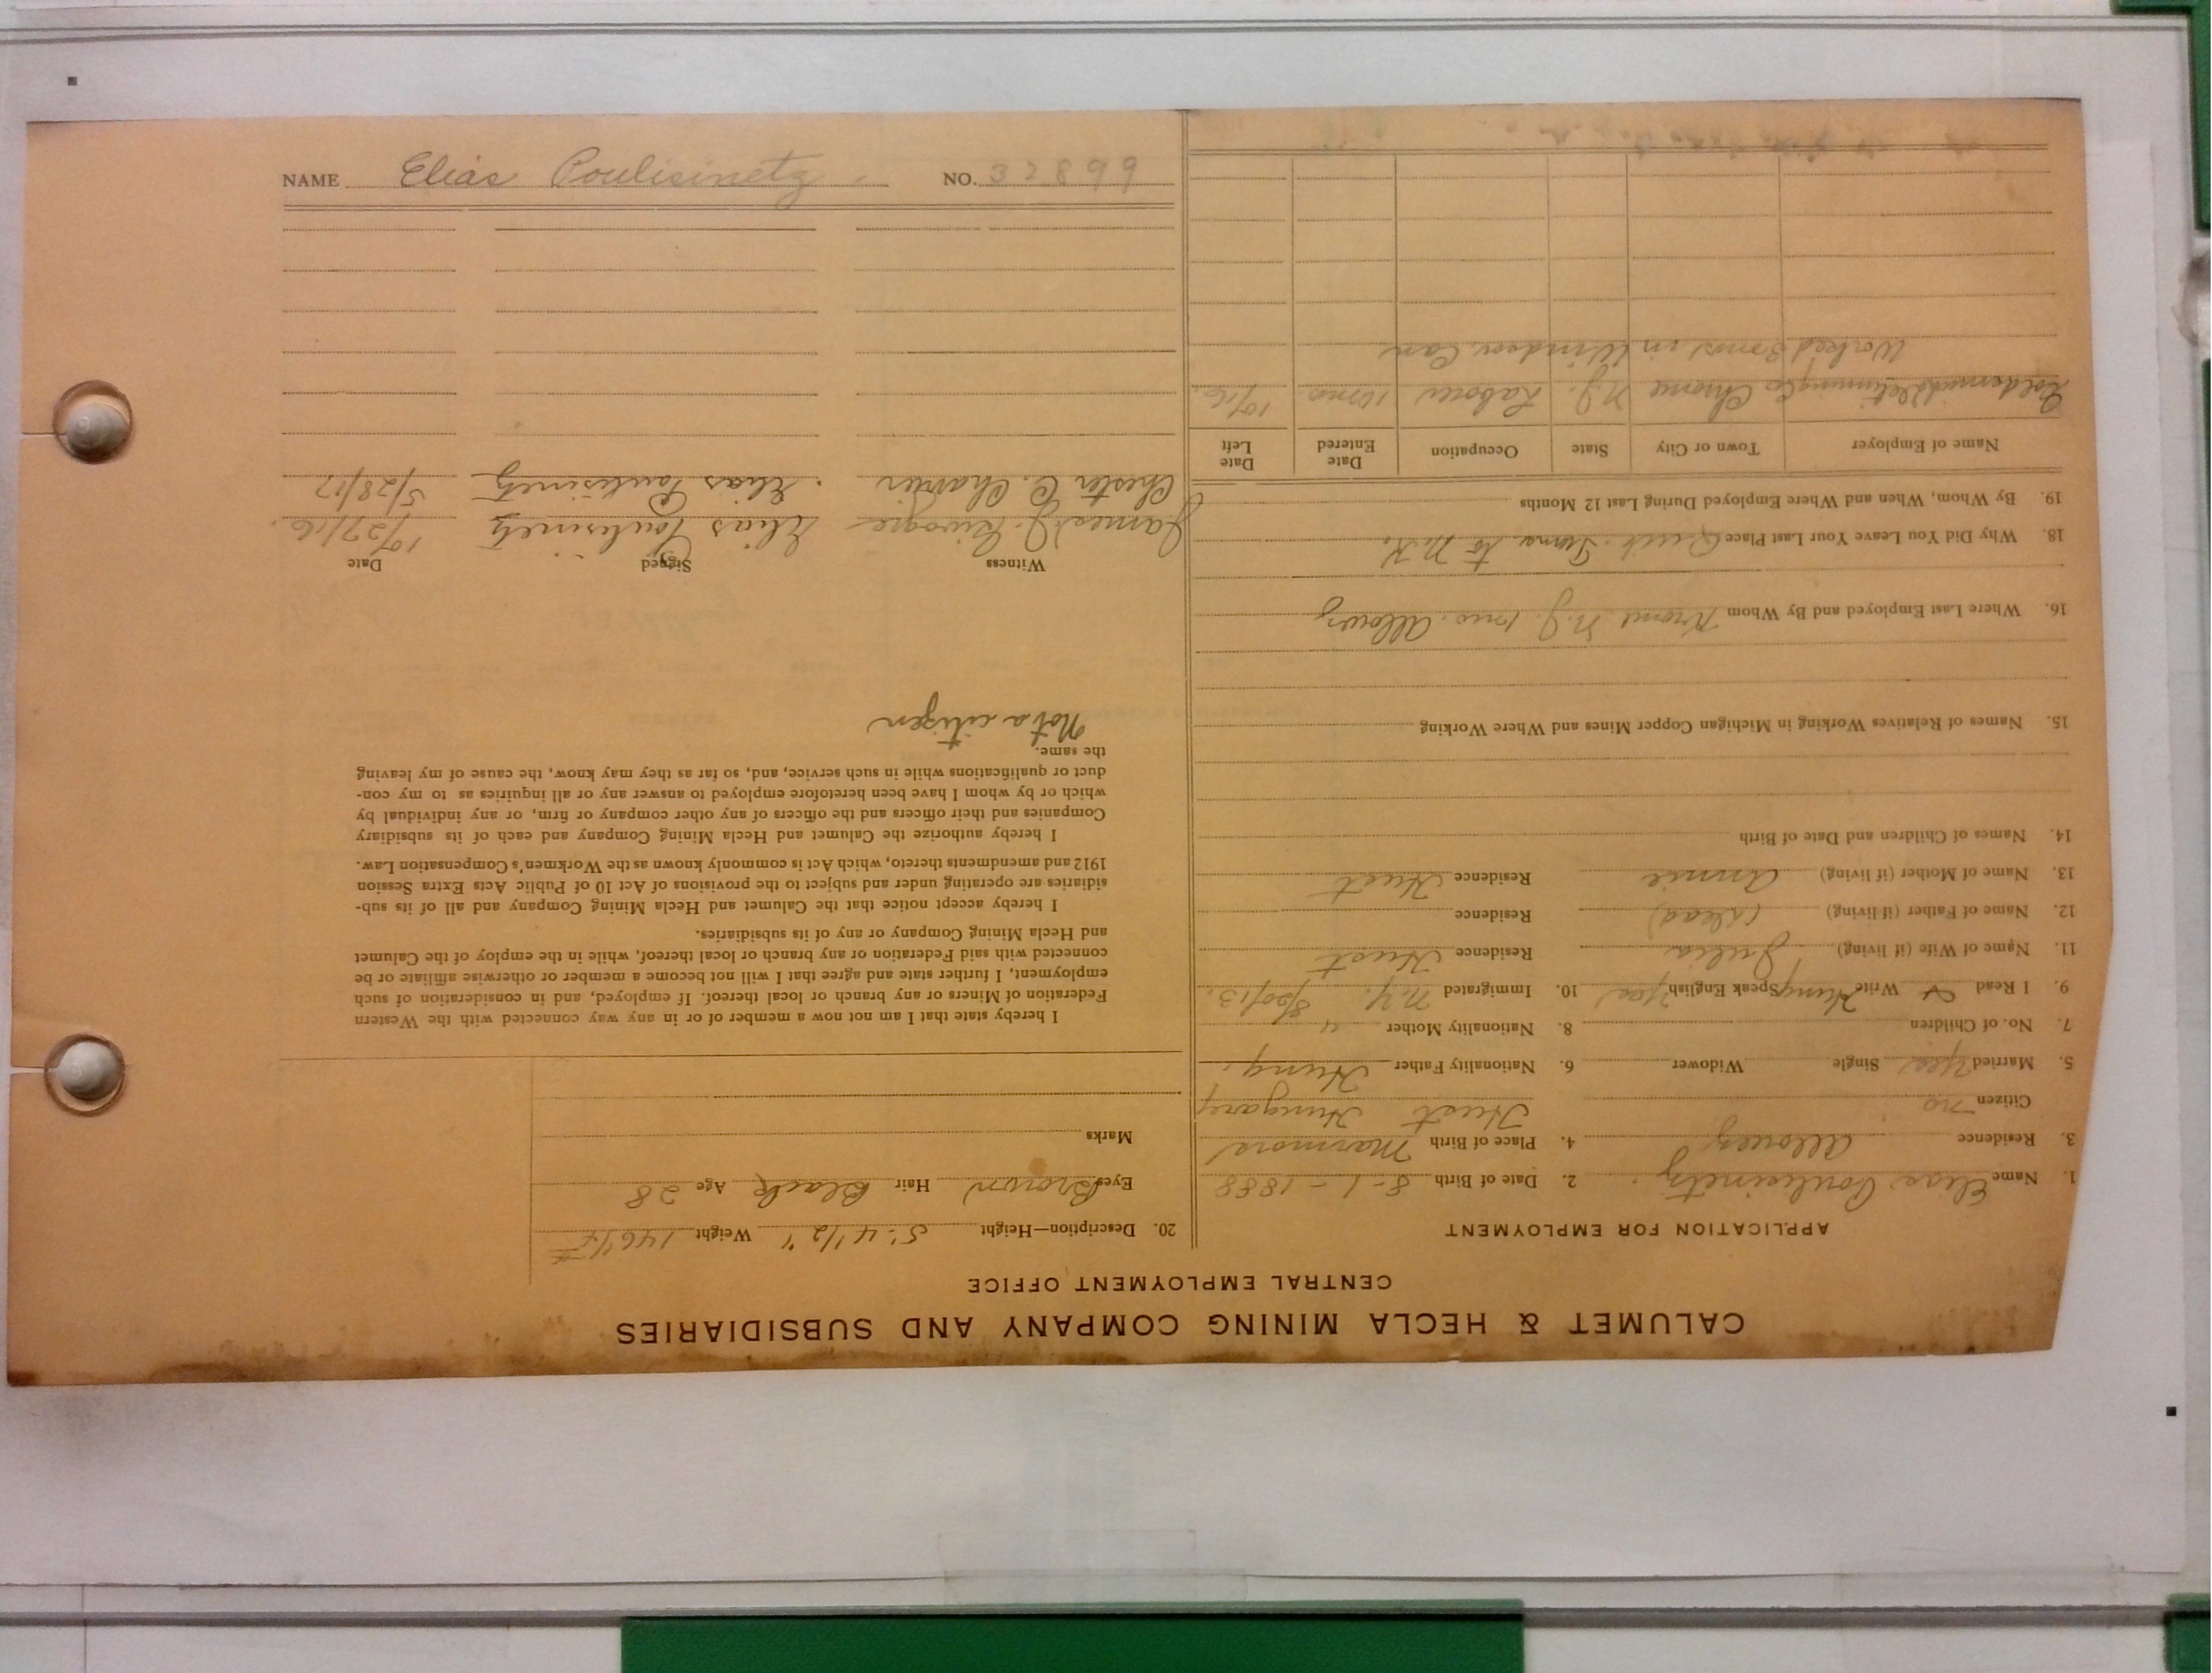 NAME Elias Poulisinetz NO. 32899
CALUMET & HECLA MINING COMPANY AND SUBSIDIARIES
CENTRAL EMPLOYMENT OFFICE
APPLICATION FOR EMPLOYMENT
1. Name Elias Poulisinetz 2. Date of Birth 8-1-1888
3. Residence Allouez 4. Place of Birth Marmors
Citizen no Hust Hungary
5. Married Yes Single Widower 6. Nationality Father Hung.
7. No. of Children 8. Nationality Mother "
9. I Read & Write Hung Speak English Yes 10. Immigrated N.Y. 8/20/13.
11. Name of Wife (if living) Julia Residence Hust
12. Name of Father (if living) (dead) Residence
13. Name of Mother (if living) Annie Residence Hust
14. Names of Children and Date of Birth
15. Names of Relatives Working in Michigan Copper Mines and Where Working
16. Where Last Employed and By Whom N.J. Allouez
18. Why Did You Leave Your Last Place Quit. to N.K.
19. By Whom, When and Where Employed During Last 12 Months
Name of Employer Town or City State Occupation Date Entered Date Left
Refining Co. Chrome N.J. Labor 10 mos. 10/16.
Worked 3 mos in Windsor, Can
20. Description—Height 5' 4 1/2" Weight 146 #
Eyes Brown Hair Black Age 28
Marks
I hereby state that I am not now a member of or in any way connected with the Western
Federation of Miners or any branch or local thereof. If employed, and in consideration of such
employment, I further state and agree that I will not become a member or otherwise affiliate or be
connected with said Federation or any branch or local thereof, while in the employ of the Calumet
and Hecla Mining Company or any of its subsidiaries.
I hereby accept notice that the Calumet and Hecla Mining Company and all of its sub-
sidiaries are operating under and subject to the provisions of Act 10 of Public Acts Extra Session
1912 and amendments thereto, which Act is commonly known as the Workmen's Compensation Law.
I hereby authorize the Calumet and Hecla Mining Company and each of its subsidiary
Companies and their officers and the officers of any other company or firm, or any individual by
which or by whom I have been heretofore employed to answer any or all inquiries as to my con-
duct or qualifications while in such service, and, so far as they may know, the cause of my leaving
the same.
Not a citizen
Witness Signed Date
James J. Elias Poulisinetz 10/27/16.
Chester C. Elias Poulisinetz 5/28/17